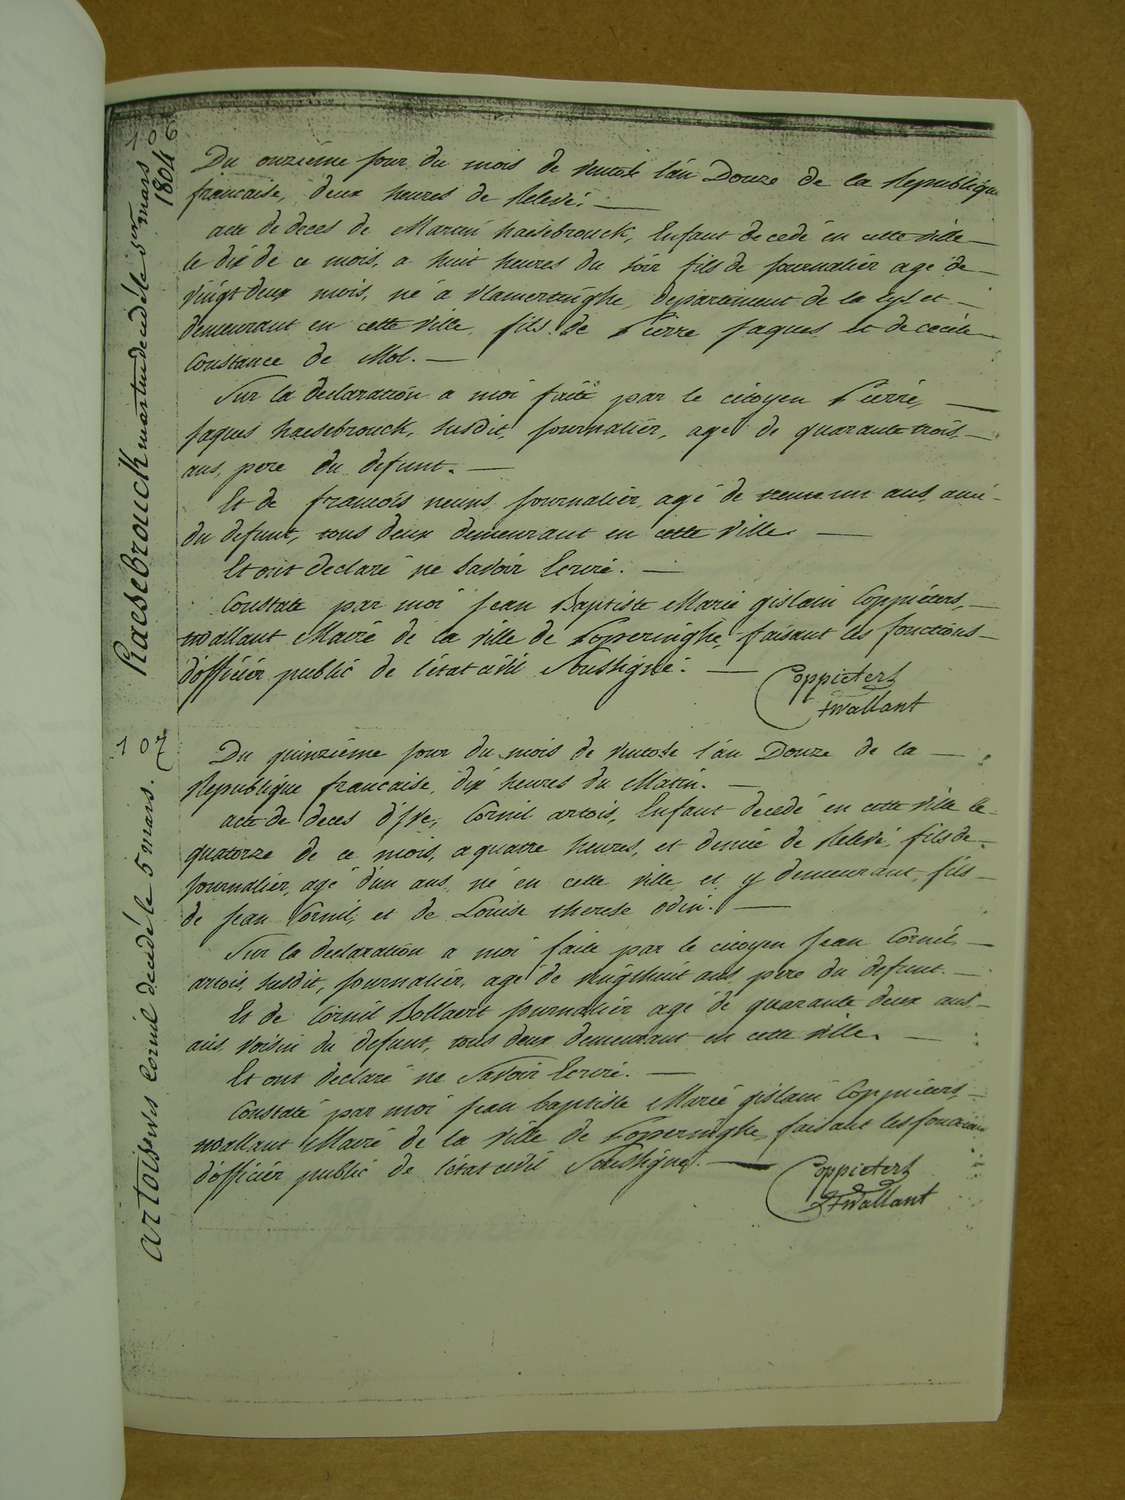 106
Haesebrouck martin decedé le 1er mars 1804
Du onzième jour du mois de ventose l'an Douze de la Republique
francaise, deux heures de Relevé. —
acte de deces de Martin haesebrouck, Enfant decedé en cette ville —
le dix de ce mois, a huit heures du soir fils de journalier agé de —
vingt deux mois, né a vlamertinghe, departement de la lys et —
demeurant en cette ville, fils de Pierre jaques et de cecile
Constance de Mol. —
Sur la declaration a moi faite par le citoyen Pierre, —
jaques haesebrouck, susdit, journalier, agé de quarante trois —
ans, pere du defunt. —
Et de francois neuns, journalier, agé de ans, ami-
du defunt, tous deux demeurant en cette ville. —
Et ont declaré ne savoir Ecrire. —
Constaté par moi jean Baptiste Marie gislain Coppieters, —
wallant Maire de la ville de Poperinghe, faisant les fonctions —
d'officier public de l'état civil Soussigné. —
Coppieters
twallant
107
artois Cornil decedé le 5 mars.
Du quinzième jour du mois de ventose l'an Douze de la —
Republique francaise, dix heures du Matin. —
acte de deces d'Ive, Cornil artois, Enfant decedé en cette ville le-
quatorze de ce mois, a quatre heures, et demie de Relevé, fils de-
journalier, agé d'un ans, né en cette ville et y demeurant, fils —
de jean Cornil, et de Louise therese odin. —
Sur la declaration a moi faite par le citoyen jean Cornil —
artois, susdit, journalier, agé de vingthuit ans, pere du defunt. —
Et de Cornil Bollaert journalier agé de quarante deux ans-
ans, voisin du defunt, tous deux demeurant en cette ville. —
Et ont declaré ne Savoir Ecrire. —
Constaté par moi jean baptiste Marie gislain Coppieters —
wallant Maire de la ville de Poperinghe, faisant les fonctions
d'officier public de l'état civil Soussigné. —
Coppieters
twallant